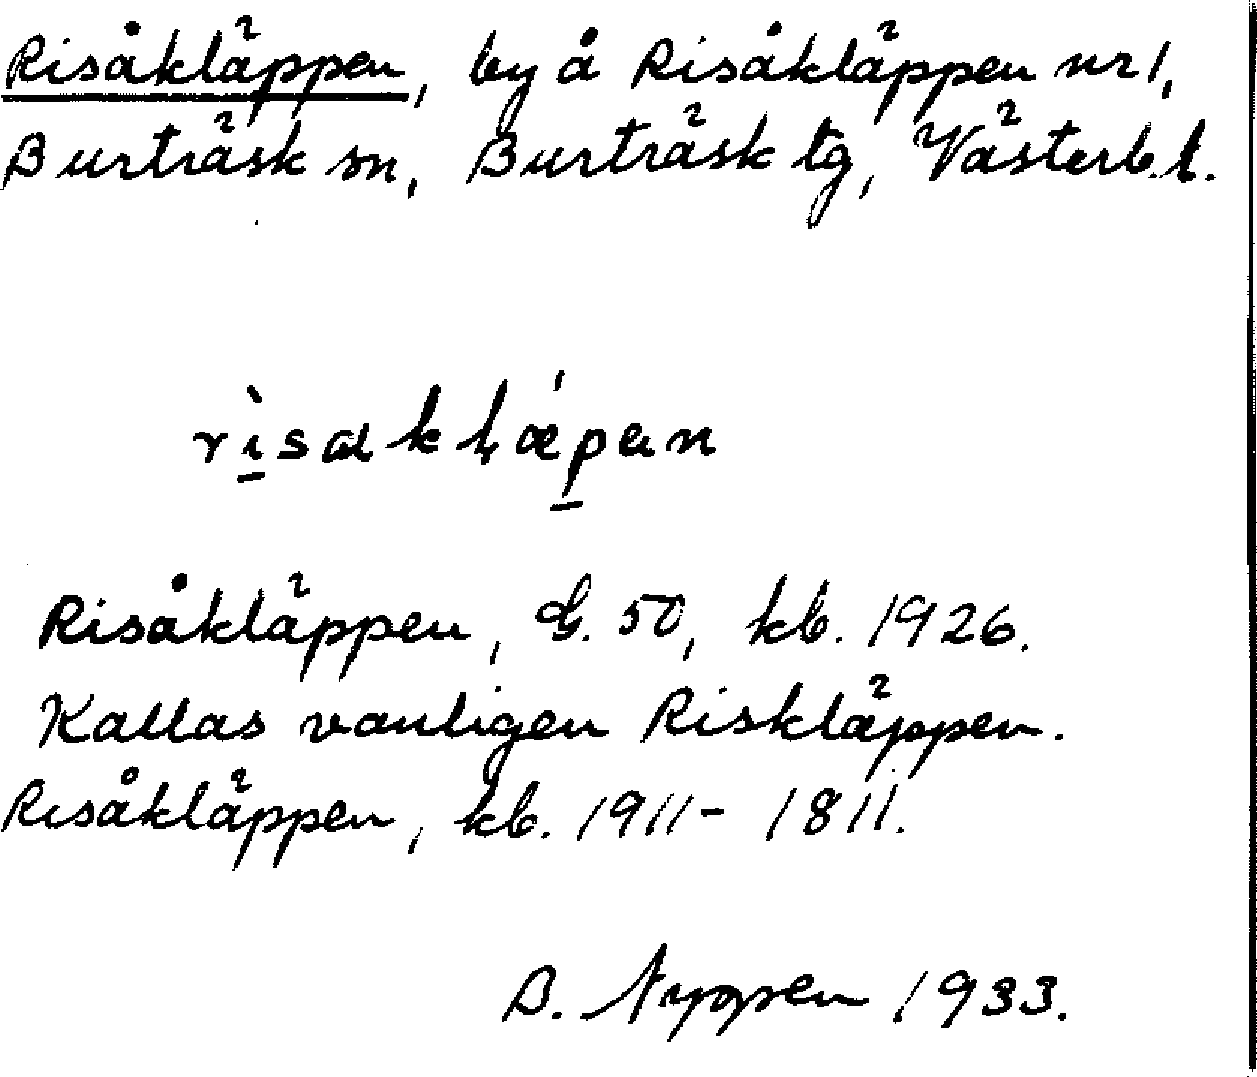 Risåkläppen, by å Risåkläppen nr 1,
Burträsk sn, Burträsk tg, Västerb. l.
Risåkläppen, G. 50, kb. 1926.
Kallas vanligen Riskläppen.
Risåkläppen, kb. 1911 - 1811.
B. 1933.